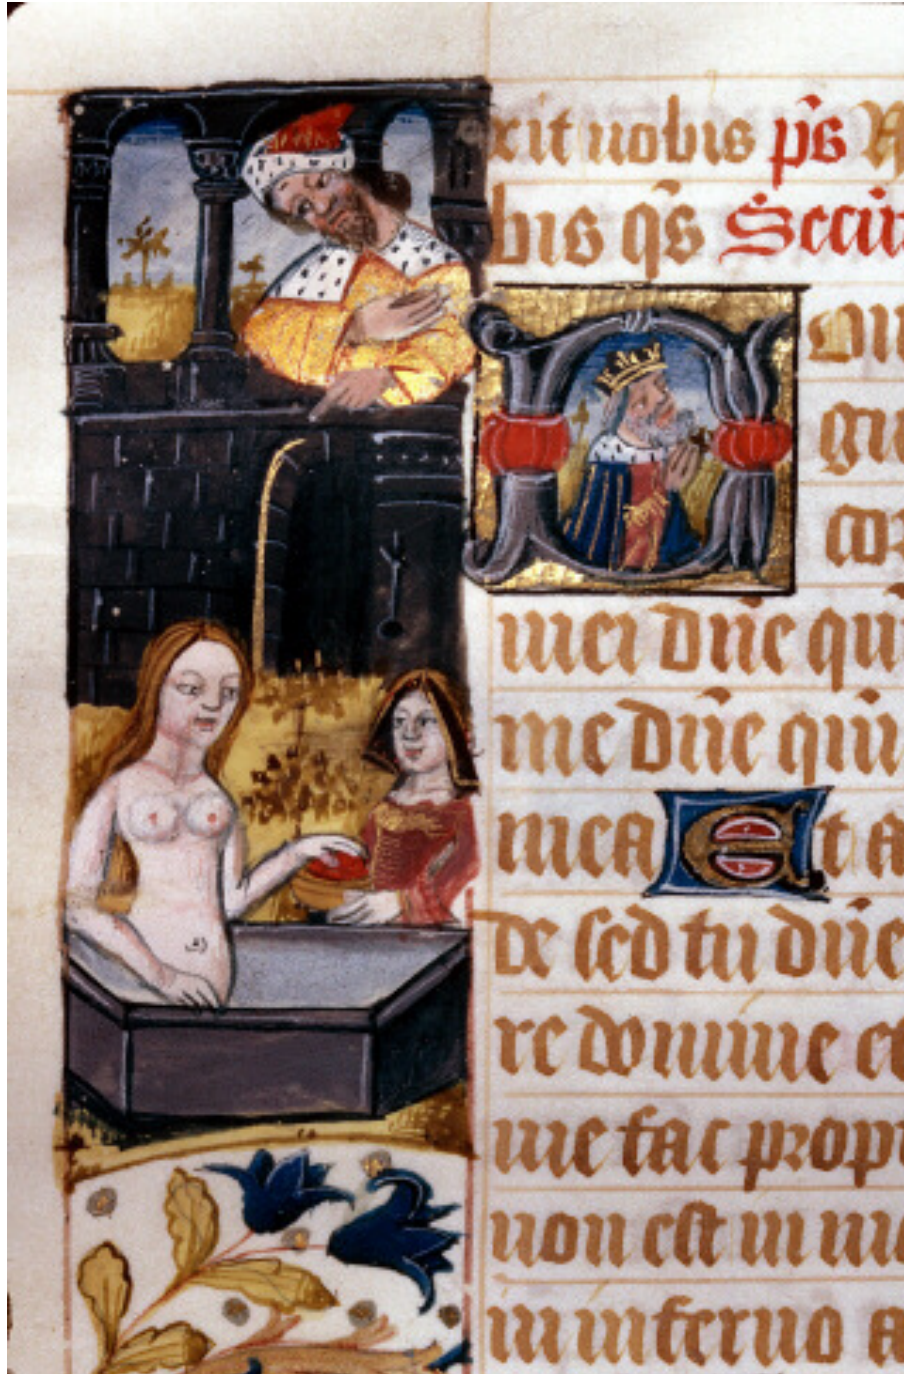 xit uobis p̄s
bis q̄s Secūn
D om
gu
cor
mei dn̄e qui
me dn̄e qui
mea Et a
de sed tu dn̄e
re domine et
me fac propt
non est in m
in inferno a